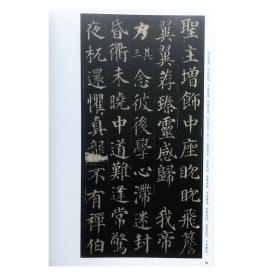 聖主增飾中座眈眈飛簷
翼翼荐臻靈感歸我帝
力其三念彼後學心滯迷封
昏衢未曉中道難逢常驚
夜杌還懼真龍不有禪伯